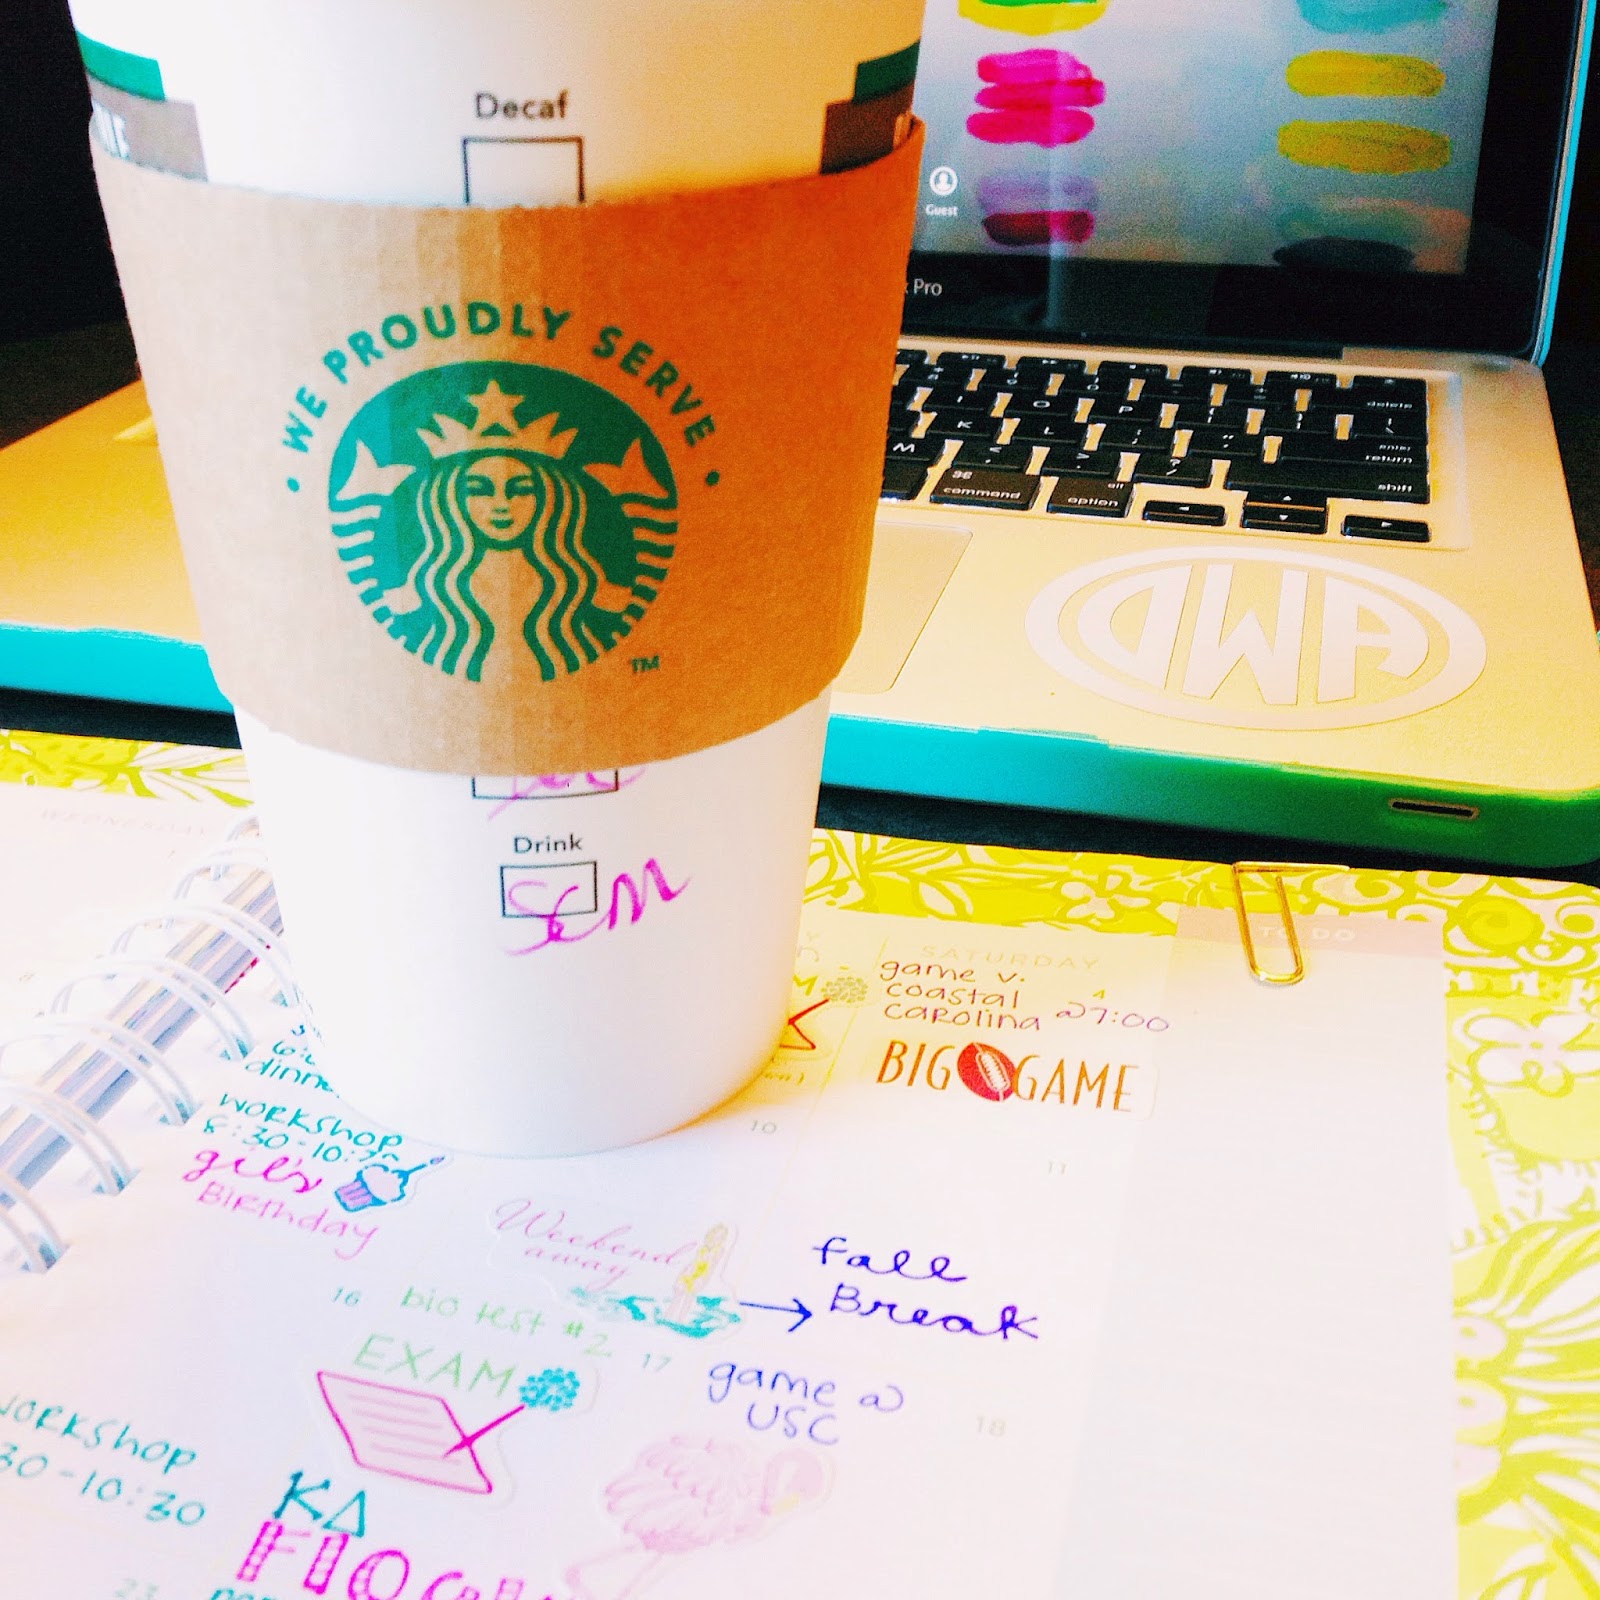 Decaf
WE PROUDLY SERVE
TM
Drink
SCM
Guest
Pro
delete
enter
return
shift
command
option
alt
I O P
K L
M
DWA
WEDNESDAY
SATURDAY
TO DO
game v.
coastal
carolina @ 7:00
BIG GAME
workshop
8:30-10:30
girl's
Birthday
10
11
Weekend
away
Fall
Break
16
bio test #2
EXAM
17
game @
USC
18
workshop
30-10:30
KΔ
23